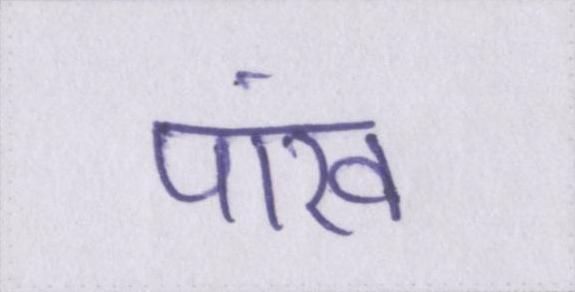 पांख